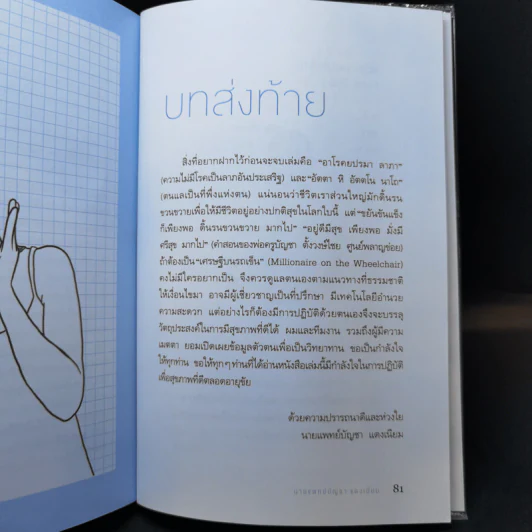 บทส่งท้าย
สิ่งที่อยากฝากไว้ก่อนจะจบเล่มคือ “อาโรคยปรมา ลาภา”
(ความไม่มีโรคเป็นลาภอันประเสริฐ) และ “อัตตา หิ อัตตโน นาโถ”
(ตนแลเป็นที่พึ่งแห่งตน) แน่นอนว่าชีวิตเราส่วนใหญ่มักดิ้นรน
ขวนขวายเพื่อให้มีชีวิตอยู่อย่างปกติสุขในโลกใบนี้ แต่ “ขยันขันแข็ง
ก็เพียงพอ ดิ้นรนขวนขวาย มากไป” “อยู่ดีมีสุข เพียงพอ มั่งมี
ศรีสุข มากไป” (คำสอนของพ่อครูบัญชา ตั้งวงษ์ไชย ศูนย์พลาญข่อย)
ถ้าต้องเป็น “เศรษฐีบนรถเข็น” (Millionaire on the Wheelchair)
คงไม่มีใครอยากเป็น จึงควรดูแลตนเองตามแนวทางที่ธรรมชาติ
ให้เงื่อนไขมา อาจมีผู้เชี่ยวชาญเป็นที่ปรึกษา มีเทคโนโลยีอำนวย
ความสะดวก แต่อย่างไรก็ต้องมีการปฏิบัติด้วยตนเองจึงจะบรรลุ
วัตถุประสงค์ในการมีสุขภาพที่ดีได้ ผมและทีมงาน รวมถึงผู้มีความ
เมตตา ยอมเปิดเผยข้อมูลตัวตนเพื่อเป็นวิทยาทาน ขอเป็นกำลังใจ
ให้ทุกท่าน ขอให้ทุกๆ ท่านที่ได้อ่านหนังสือเล่มนี้มีกำลังใจในการปฏิบัติ
เพื่อสุขภาพที่ดีตลอดอายุขัย
ด้วยความปรารถนาดีและห่วงใย
นายแพทย์บัญชา แดงเนียม
นายแพทย์บัญชา แดงเนียม 81